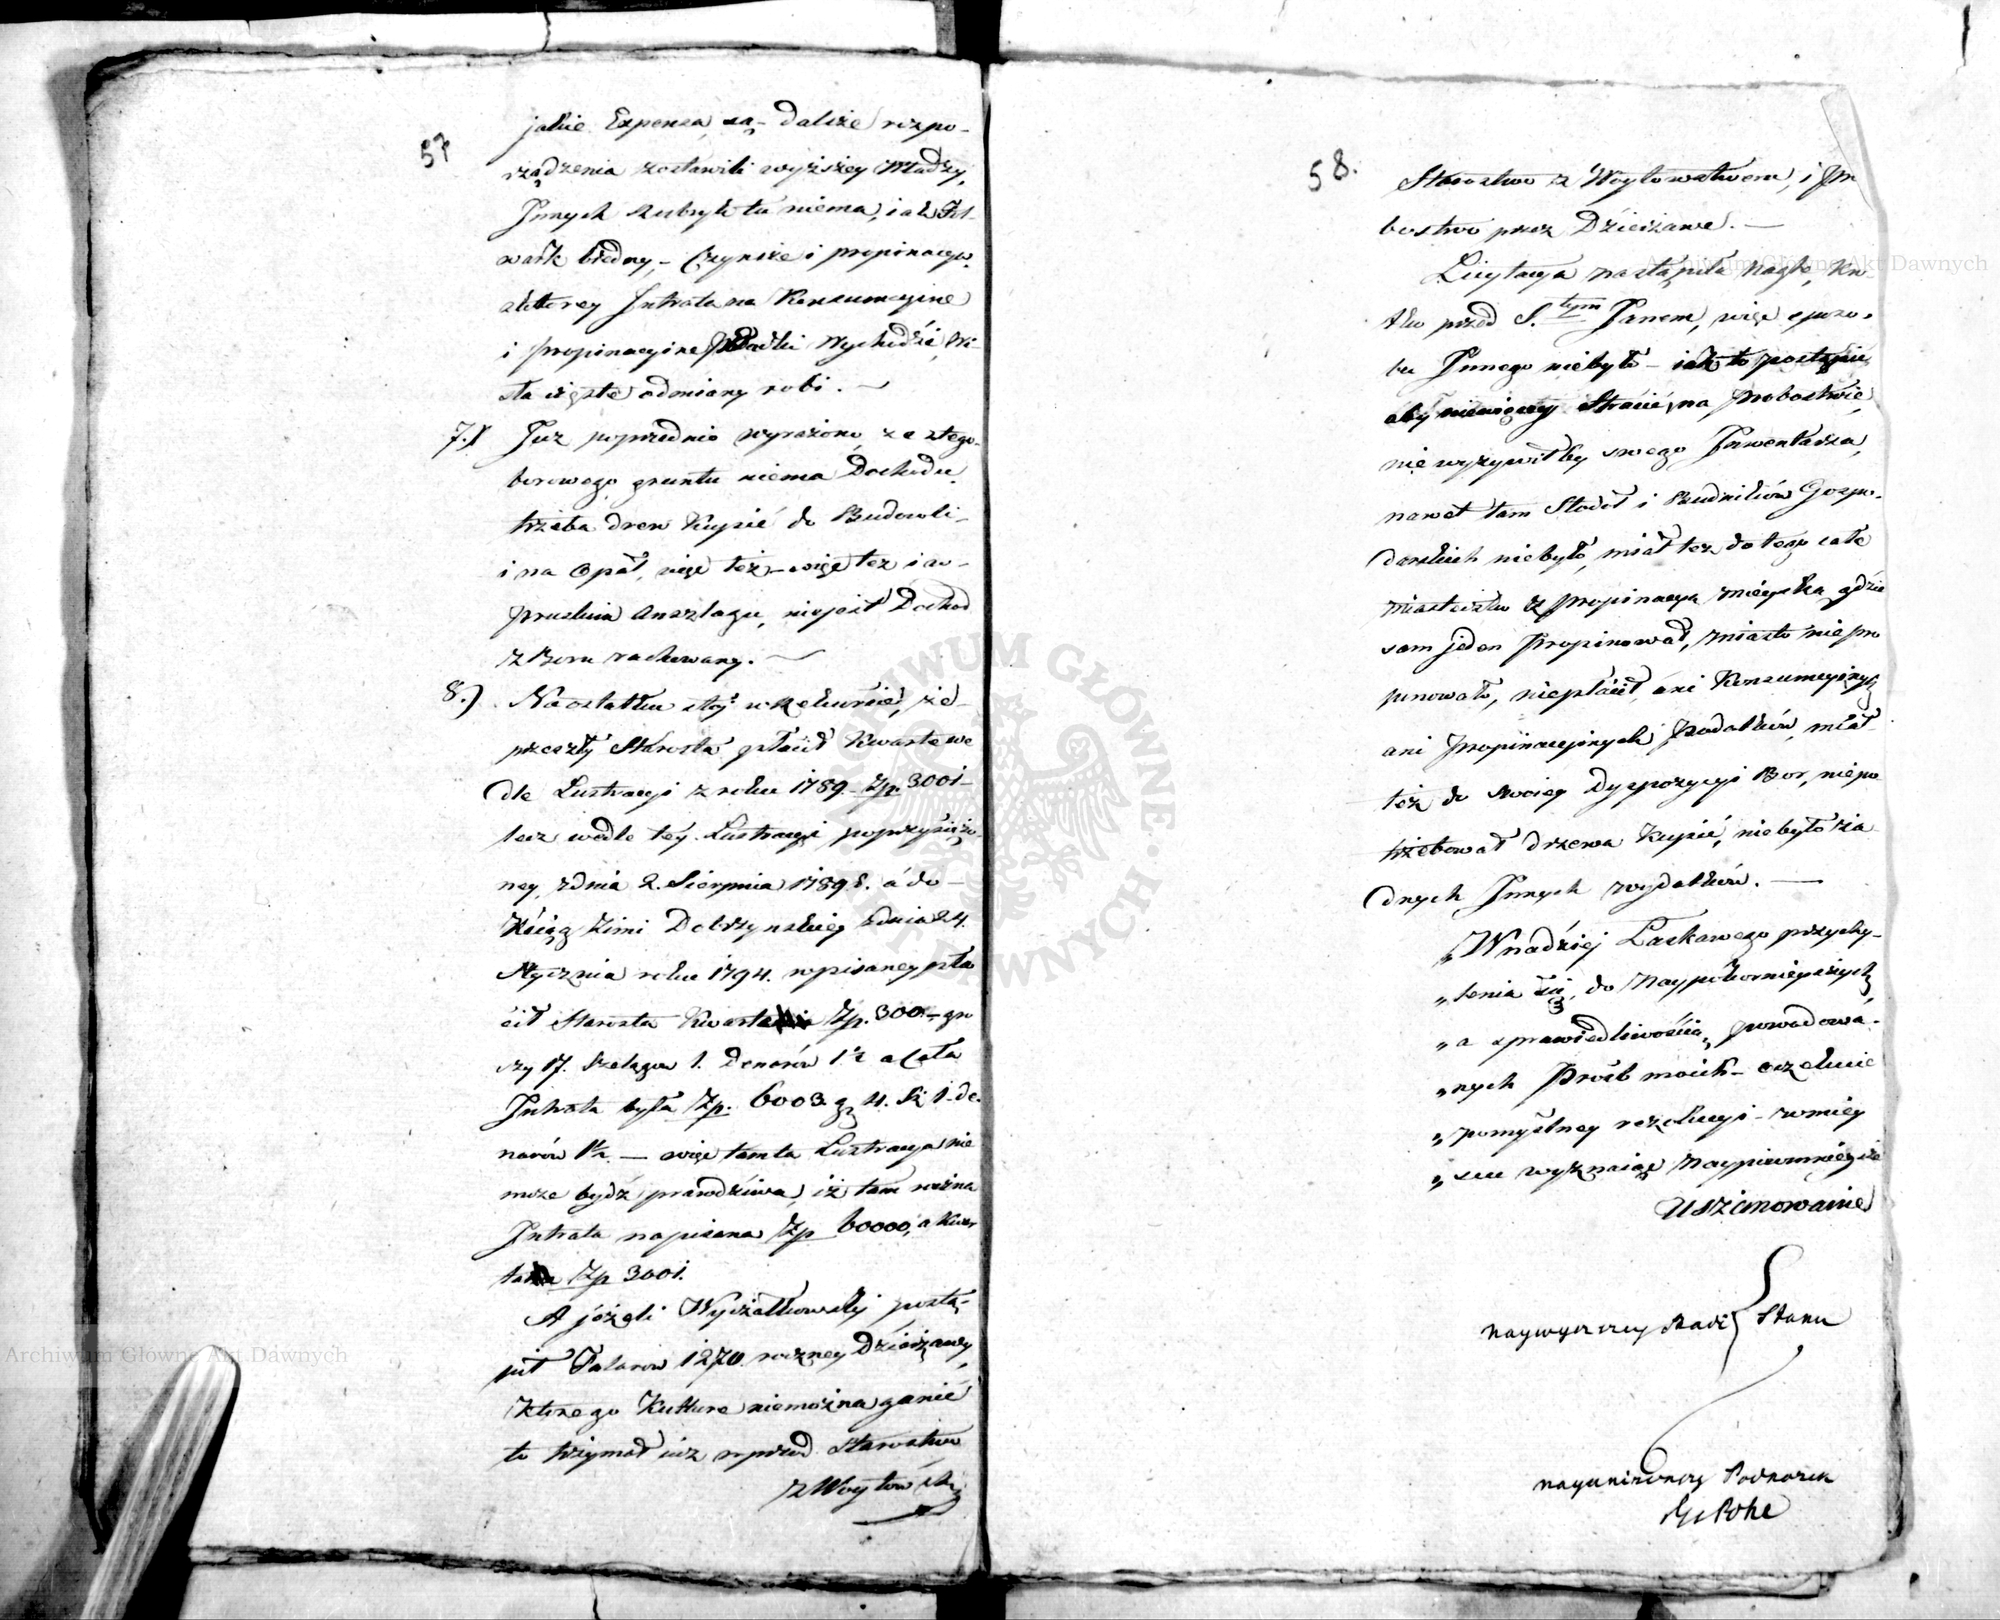 57
jakie Expensa są – dalsze rozpo-
rządzenia zostawili wyższey Władzy,
Innych Rubryk tu niema, iak Fol-
wark biedny, – Czynsze i propinacya
z ktorey Intrata na Konsumcyine
i propinacyine Podatki Wychodzi,
częste odmiany robi. –
7.) Juz poprzednio wyrażono, że z tego
borowego gruntu niema Dochodu
trzeba drew Kupić do Budowli –
i na Opał, więc też – więc tez i w
Pruskim Anszlagu, niejest Dochod
z Boru rachowany. –
8.) Naostatku stoi w rekursie, że –
przeszły Starosta płacił Kwartę we
dle Lustracyi z roku 1789. Zp. 3001 –
lecz wedle tey Lustracyi poprzysiężo-
ney, z dnia 2. Sierpnia 1789 r. á do –
Xiąg Zimi Dobrzynskiey dnia 24.
Stycznia roku 1794. wpisaney pła
cił Starosta Kwarte Zp. 300. – gro
szy 17. Szelągow 1. Denarów 1½ a Cała
Intrata była Zp. 6003 gr 4. Sz 1. de-
narów 1½. – więc tamta Lustracya nie
może bydź prawdziwa, iż tam
Intrata napisana Zp 60000, a Kwar
ta Zp 3001.
A jeżeli Wyczałkowsky postą-
pił Talarow 1270. roczney Dzierżawy,
Ktorego Kulture niemożna ganić
to trzymał iuż wprzod Starostwo
z Woytow
58.
Starostwo z Woytowstwem, i Pro
bostwo przez Dzierżawe. –
Licytacya nastąpiła nagle, Kró-
tko przed S.tym Janem, więc sposo-
bu Innego niebyło – iak to postąpić
aby niewięcey Stracić, na Probostwie
niewyżywiłby swego Inwentarza,
nawet tam Stodoł i Budników Gospo-
darskich niebyło, miał tez do tego całe
miasteczko z propinacyą mieyską gdzie
sam jeden Propinował, miasto niepro
pinowało, niepłacił, ani Konsumcyinych
ani propinacyinych Podatków, miał
też do swoiey Dyspozycyi Bor, niepo
trzebował drzewa Kupić, niebyło ża
dnych Innych wydatków. –
„W nadziei Łaskawego przychy-
„lenia się, do Naypokornieyszych
„a sprawiedliwością, powodowa-
„nych Próśb moich – oczekuie
„pomyślney rezolucyi –
„scu wyznaiąc Naypowinnieysze
Uszanowanie
Naywyższey Rady Stanu
nayuniżenszy Podnożek